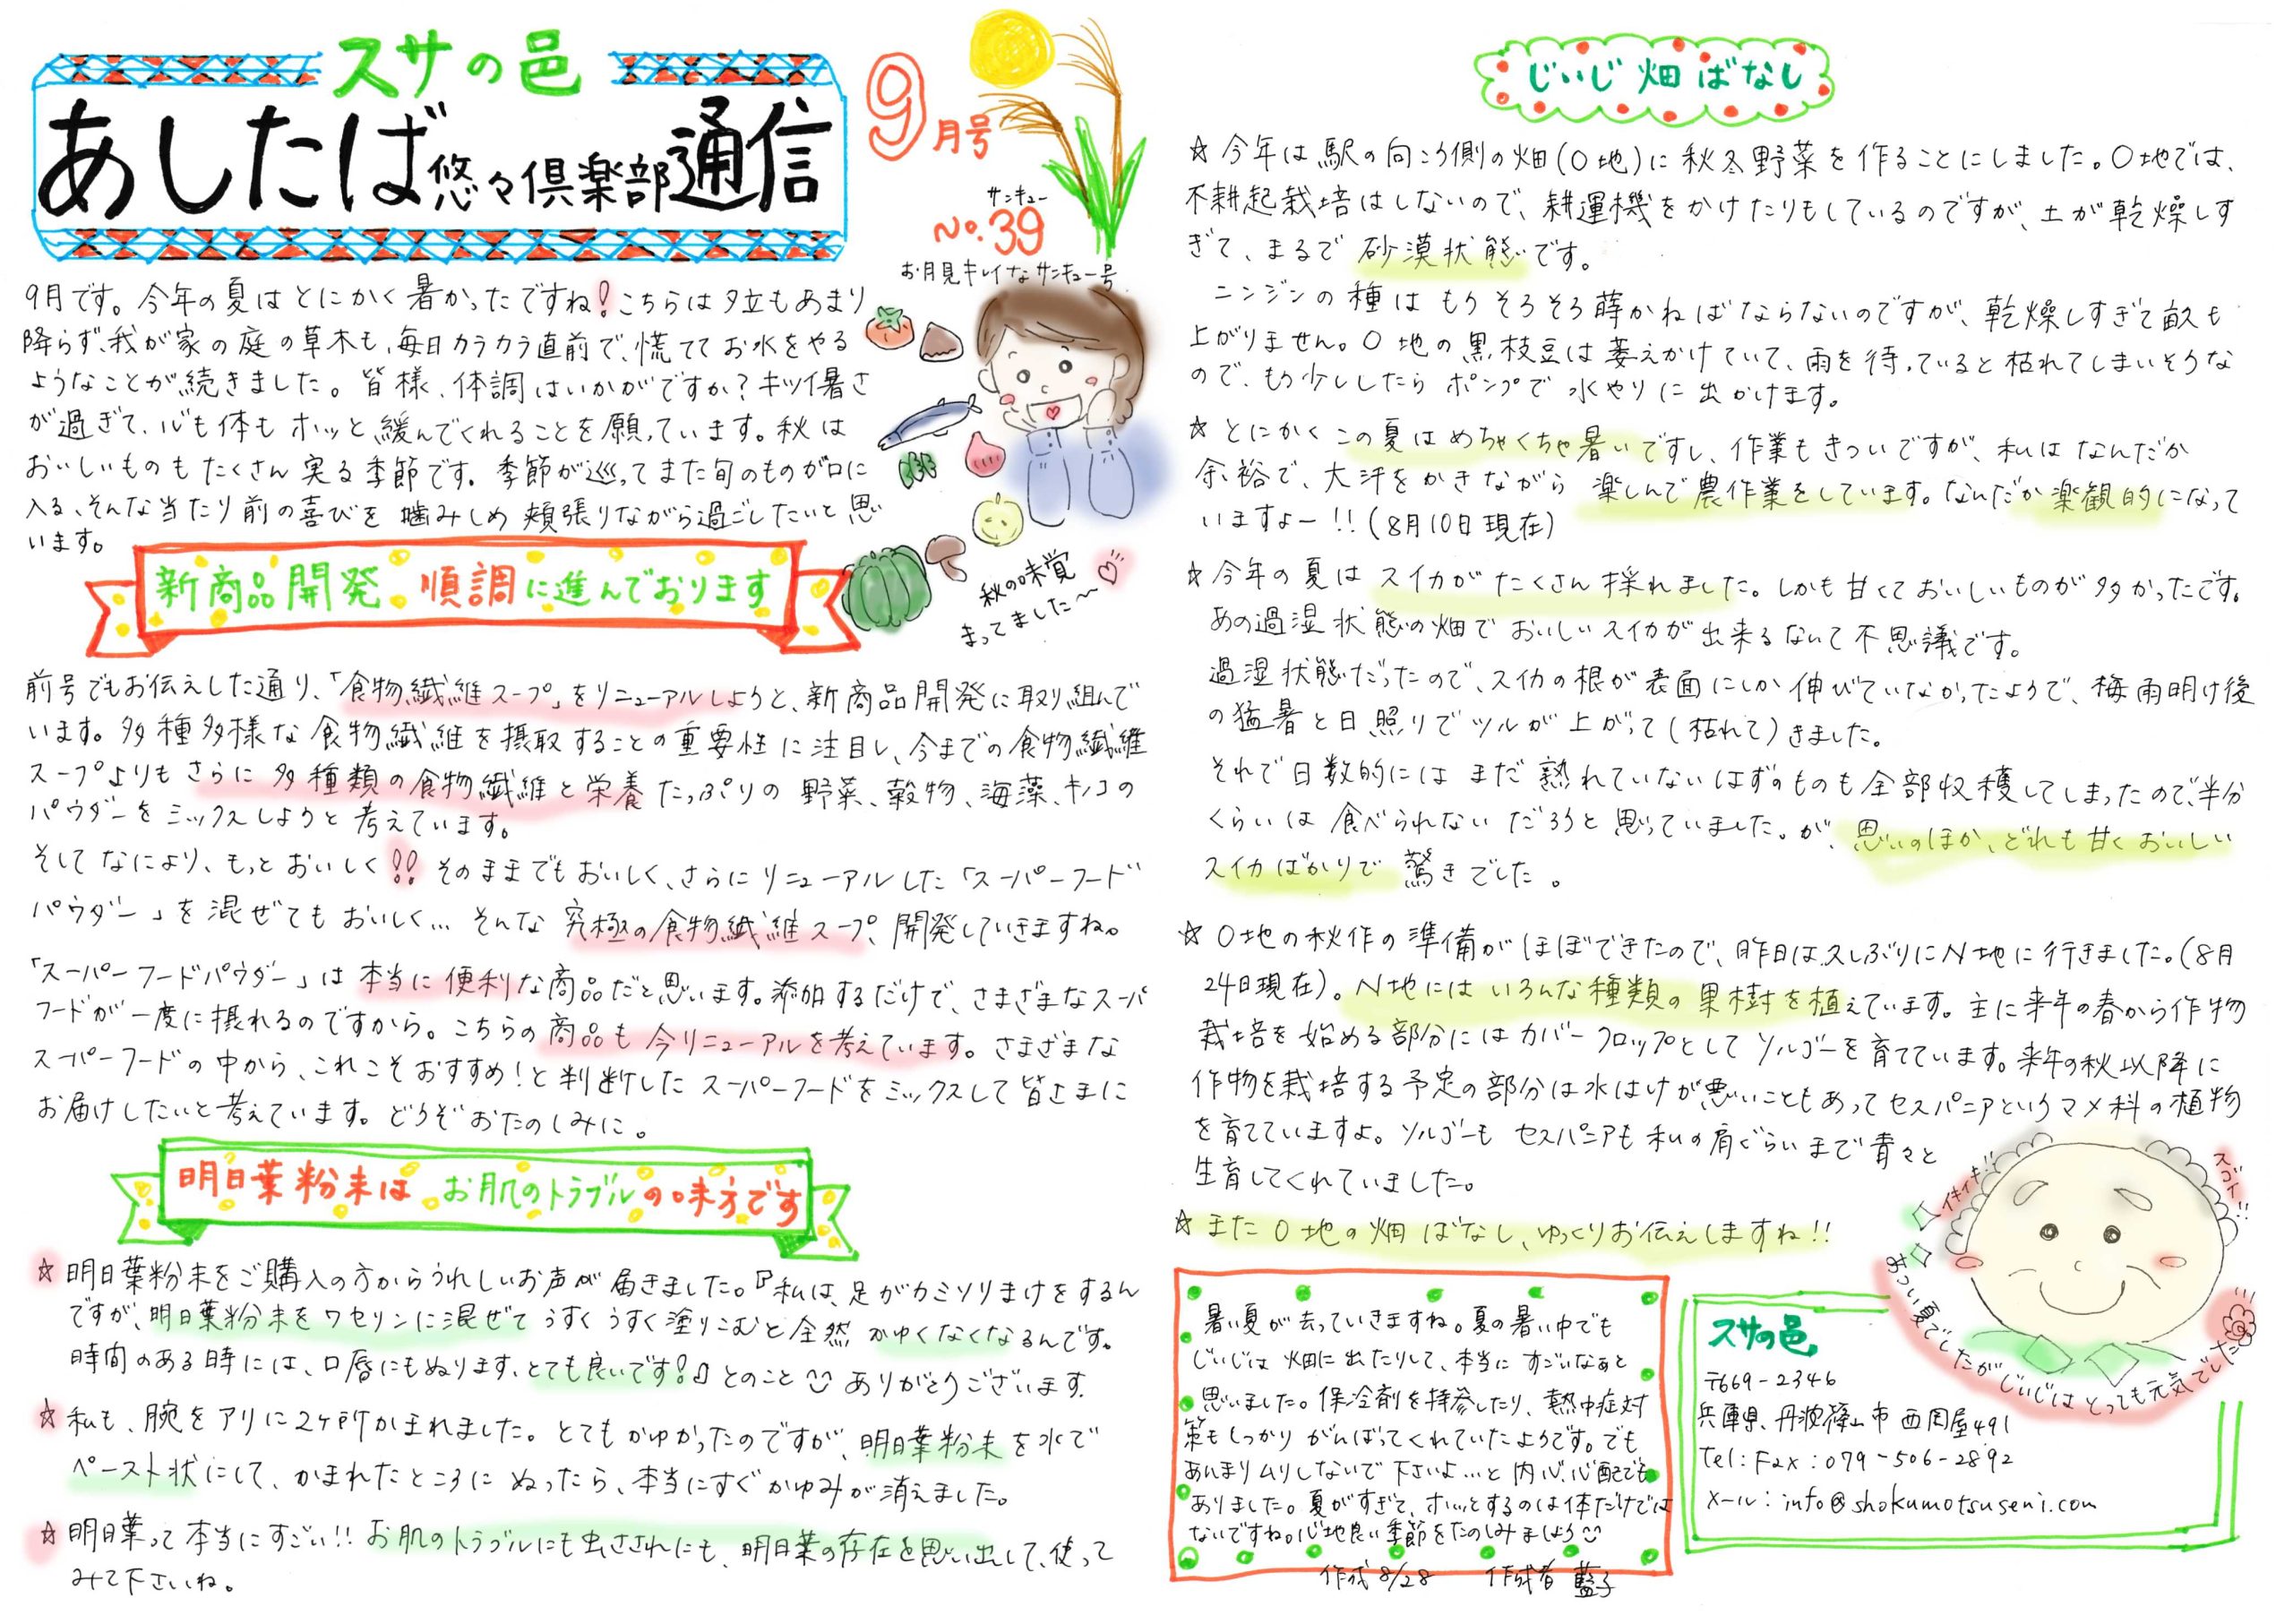 スサの邑
あしたば悠々倶楽部通信
9月号
サンキュー
No.39
お月見キレイなサンキュー号
9月です。今年の夏はとにかく暑かったですね!こちらは夕立もあまり
降らず、我が家の庭の草木も、毎日カラカラ直前で、慌ててお水をやる
ようなことが続きました。皆様、体調はいかがですか?キツイ暑さ
が過ぎて、心も体もホッと緩んでくれることを願っています。秋は
おいしいものもたくさん実る季節です。季節が巡ってまた旬のものが口に
入る、そんな当たり前の喜びを噛みしめ頬張りながら過ごしたいと思
います。
秋の味覚
まってました〜
新商品開発 順調に進んでおります
前号でもお伝えした通り、「食物繊維スープ」をリニューアルしようと、新商品開発に取り組んで
います。多種多様な食物繊維を摂取することの重要性に注目し、今までの食物繊維
スープよりもさらに多種類の食物繊維と栄養たっぷりの野菜、穀物、海藻、キノコの
パウダーをミックスしようと考えています。
そしてなにより、もっとおいしく!!そのままでもおいしく、さらにリニューアルした「スーパーフード
パウダー」を混ぜてもおいしく…そんな究極の食物繊維スープ、開発していきますね。
「スーパーフードパウダー」は本当に便利な商品だと思います。添加するだけで、さまざまなスーパー
フードが一度に摂れるのですから。こちらの商品も今リニューアルを考えています。さまざまな
スーパーフードの中から、これこそおすすめ!と判断したスーパーフードをミックスして皆さまに
お届けしたいと考えています。どうぞおたのしみに。
明日葉粉末はお肌のトラブルの味方です
☆明日葉粉末をご購入の方からうれしいお声が届きました。『私は、足がカミソリまけをするん
ですが、明日葉粉末をワセリンに混ぜてうすくうすく塗りこむと全然かゆくなくなるんです。
時間のある時には、口唇にもぬります、とても良いです!』とのこと ありがとうございます。
☆私も、腕をアリに2ヶ所かまれました。とてもかゆかったのですが、明日葉粉末を水で
ペースト状にして、かまれたところにぬったら、本当にすぐかゆみが消えました。
☆明日葉って本当にすごい!!お肌のトラブルにも虫さされにも、明日葉の存在を思い出して、使って
みて下さいね。
じいじ畑ばなし
☆今年は駅の向こう側の畑(O地)に秋冬野菜を作ることにしました。O地では、
不耕起栽培はしないので、耕運機をかけたりもしているのですが、土が乾燥しす
ぎて、まるで砂漠状態です。
ニンジンの種はもうそろそろ蒔かねばならないのですが、乾燥しすぎて畝も
上がりません。O地の黒枝豆は萎えかけていて、雨を待っていると枯れてしまいそうな
ので、もう少ししたらポンプで水やりに出かけます。
☆とにかくこの夏はめちゃくちゃ暑いですし、作業もきついですが、私はなんだか
余裕で、大汗をかきながら楽しんで農作業をしています。なんだか楽観的になって
いますよー!!(8月10日現在)
☆今年の夏はスイカがたくさん採れました。しかも甘くておいしいものが多かったです。
あの過湿状態の畑でおいしいスイカが出来るなんて不思議です。
過湿状態だったので、スイカの根が表面にしか伸びていなかったようで、梅雨明け後
の猛暑と日照りでツルが上がって(枯れて)きました。
それで日数的にはまだ熟れていないはずのものも全部収穫してしまったので、半分
くらいは食べられないだろうと思っていました。が、思いのほか、どれも甘くおいしい
スイカばかりで驚きでした。
☆O地の秋作の準備がほぼできたので、昨日は久しぶりにN地に行きました。(8月
24日現在)。N地にはいろんな種類の果樹を植えています。主に来年の春から作物
栽培を始める部分にはカバークロップとしてソルゴーを育てています。来年の秋以降に
作物を栽培する予定の部分は水はけが悪いこともあってセスバニアというマメ科の植物
を育てていますよ。ソルゴーもセスバニアも私の肩ぐらいまで青々と
生育してくれていました。
☆またO地の畑ばなし、ゆっくりお伝えしますね!!
イキイキ!!
スゴイ!!
あつい夏でしたがじいじはとっても元気でした
暑い夏が去っていきますね。夏の暑い中でも
じいじは畑に出たりして、本当にすごいなあと
思いました。保冷剤を持参したり、熱中症対
策もしっかりがんばってくれていたようです。でも
あんまりムリしないで下さいよ…と内心、心配でも
ありました。夏がすぎて、ホッとするのは体だけでは
ないですね。心地良い季節をたのしみましょう
作成 8/28 作成者 藍子
スサの邑
〒669-2346
兵庫県丹波篠山市西岡屋491
Tel:Fax:079-506-2892
メール:info@shokumotsuseni.com